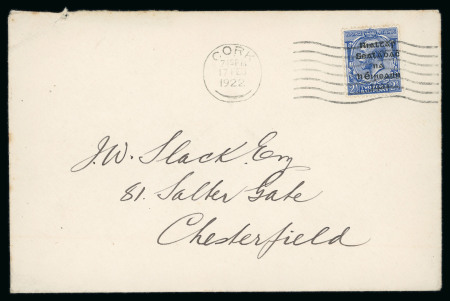 CORK
17 FEB
1922
Rialtas
Sealadac
na
hÉireann
J. W. Slack. Esq
81. Salter Gate
Chesterfield